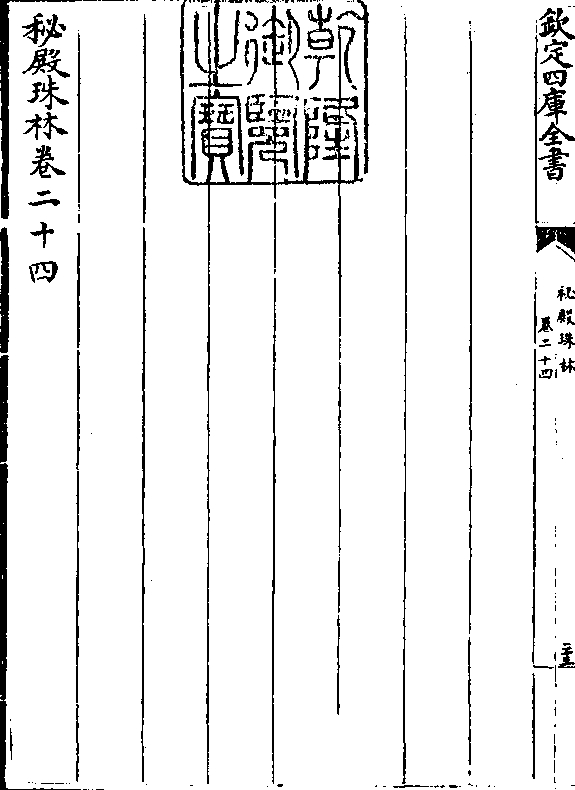 欽定四庫全書
秘殿珠林
卷二十四
乾隆
御覽
之寶
秘殿珠林卷二十四